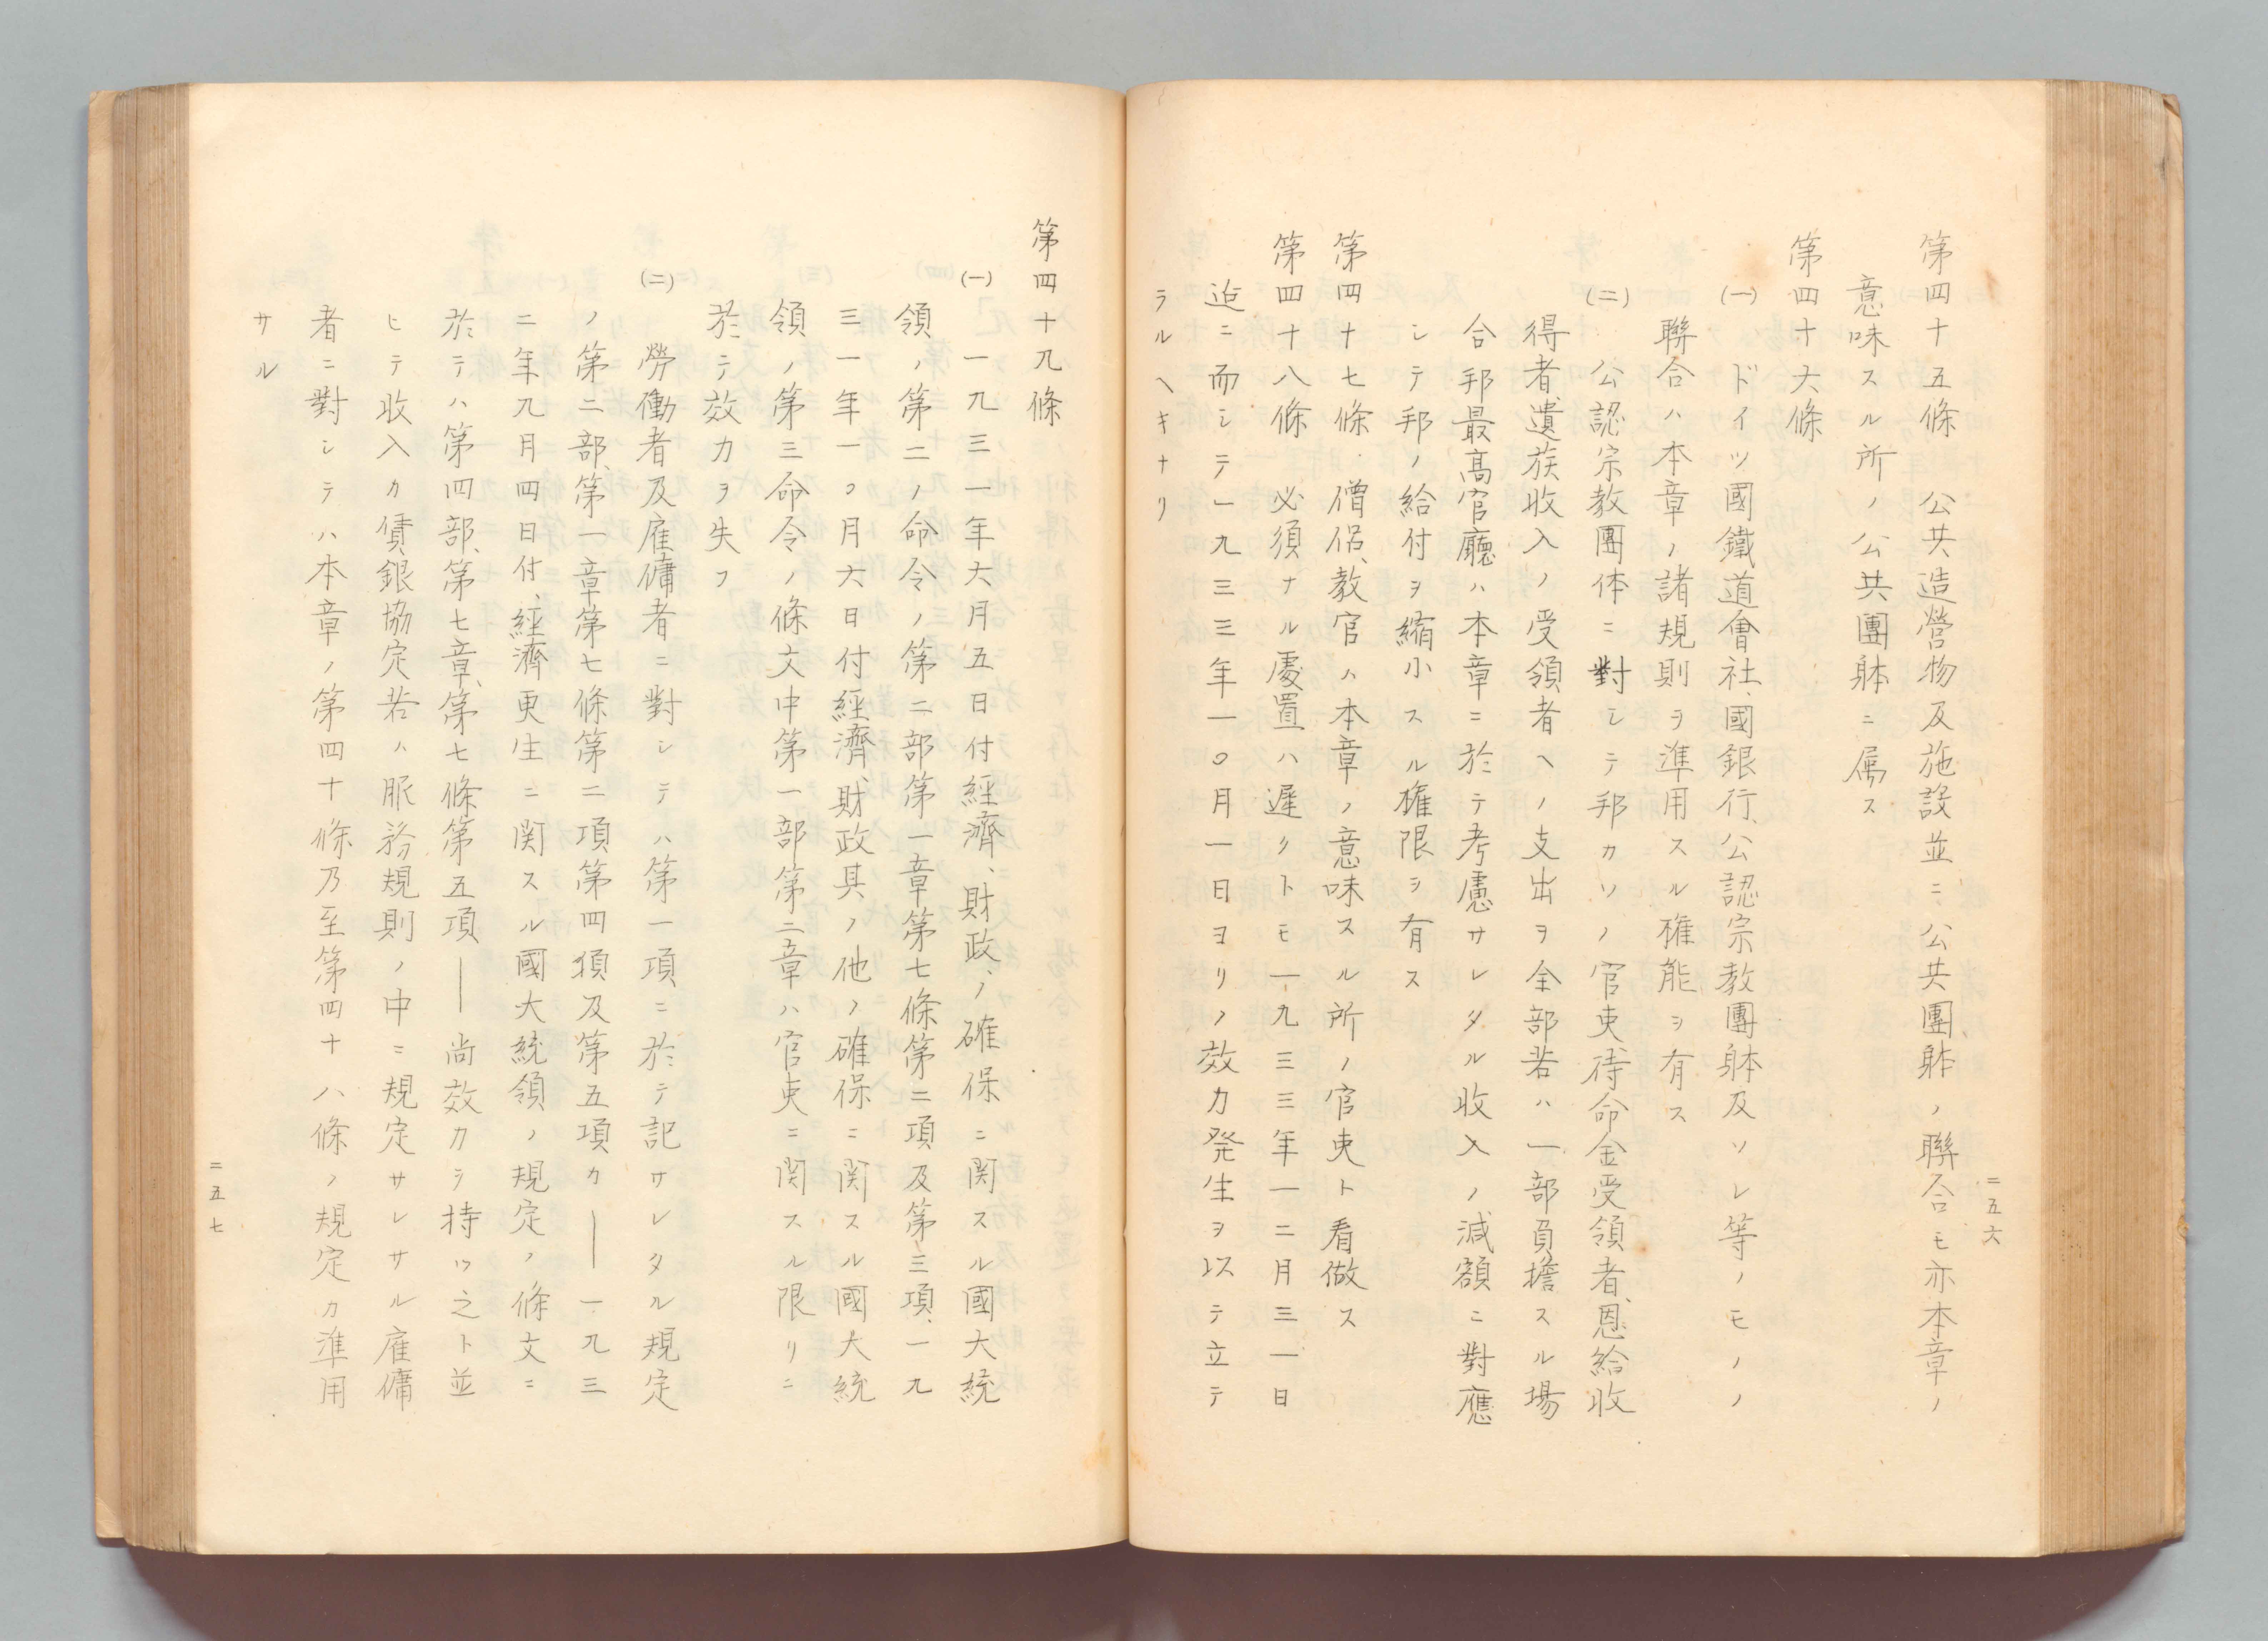 二五六
第四十五條　公共造營物及施設並ニ公共團躰ノ聯合モ亦本章ノ
意味スル所ノ公共團躰ニ属ス
第四十六條
(一)　ドイツ國鐵道會社、國銀行、公認宗教團躰及ソレ等ノモノノ
聯合ハ本章ノ諸規則ヲ準用スル権能ヲ有ス
(二)　公認宗教團体ニ對シテ邦カソノ官吏、待命金受領者、恩給收
得者、遺族收入ノ受領者ヘノ支出ヲ全部若ハ一部負擔スル場
合邦最高官廳ハ本章ニ於テ考慮サレタル收入ノ減額ニ對應
シテ邦ノ給付ヲ縮小スル権限ヲ有ス
第四十七條　僧侶、教官ハ本章ノ意味スル所ノ官吏ト看做ス
第四十八條　必須ナル處置ハ遲クトモ一九三三年一二月三一日
迄ニ而シテ一九三三年一〇月一日ヨリノ效力発生ヲ以テ立テ
ラルヘキナリ
第四十九條
(一)　一九三一年六月五日付經濟、財政、ノ確保ニ関スル國大統
領ノ第二ノ命令ノ第二部第一章第七條第二項及第三項、一九
三一年一〇月六日付經濟、財政其ノ他ノ確保ニ関スル國大統
領ノ第三命令ノ條文中第一部第二章ハ官吏ニ関スル限リニ
於テ效力ヲ失フ
(二)　勞働者及雇傭者ニ對シテハ第一項ニ於テ記サレタル規定
ノ第二部、第一章第七條第二項第四須及第五項カ――一九三
二年九月四日付、經濟更生ニ関スル國大統領ノ規定ノ條文ニ
於テハ第四部、第七章、第七條第五項――尚效力ヲ持ツ之ト並
ヒテ收入カ賃銀協定若ハ服務規則ノ中ニ規定サレサル雇傭
者ニ對シテハ本章ノ第四十條乃至第四十八條ノ規定カ準用
サル
二五七